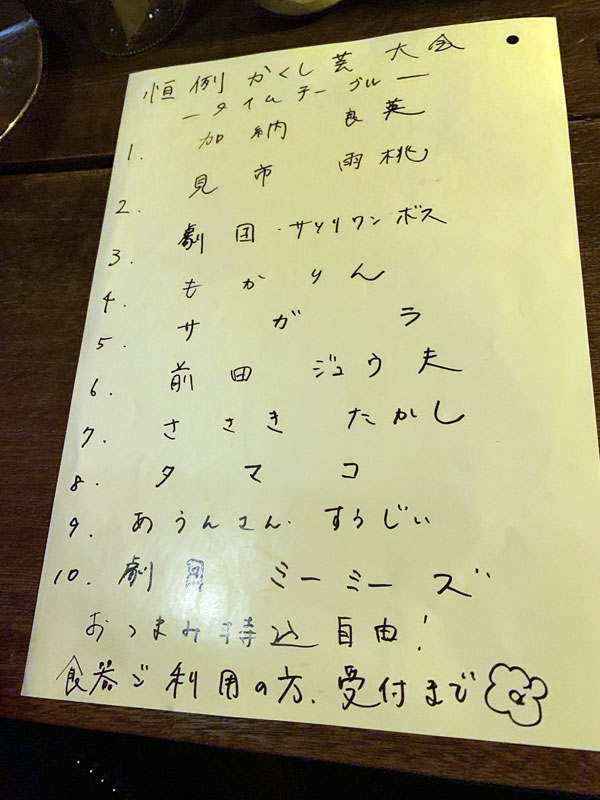 恒例 かくし芸 大会
ータイムテーブルー
1. 加納 良英
2. 見市 雨桃
3. 劇団・サソリワンボス
4. もかりん
5. サガラ
6. 前田 ジュウ夫
7. ささき たかし
8. タマコ
9. あうんさん. すうじい
10. 劇団 ミーミーズ
おつまみ持込自由!
食器ご利用の方、受付まで